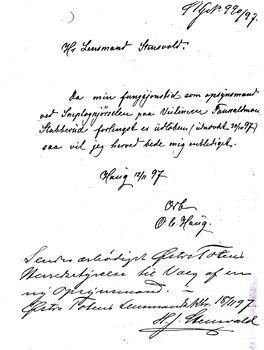 990/97.
Hr Lensmand Stensvold.
Da min fungsjonstid som opsynsmand
ved Sneplogkjørselen paa Veilinien
Stubberud forlengst er udløben (
saa vil jeg herved bede mig entlediget.
Haug 12/11 97.
Erb
O C Haug.
Sendes ærbødigst Østre Totens
Herredstyrelse til Valg af en
ny opsynsmand.
Østre Totens Lensmandsktr 15/11 97.
Stensvold